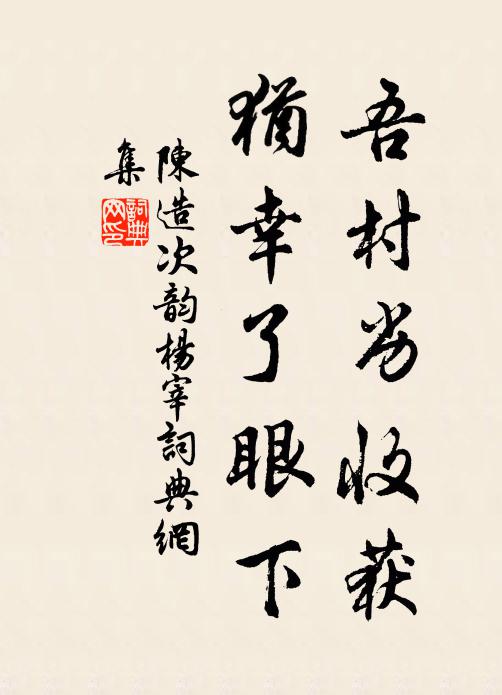 吾村劣收获
猶幸了眼下
陳造次韵楊宰詞典網
集
詞典網印